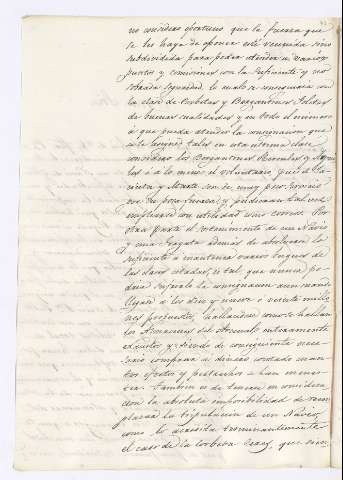 no considero oportuno que la fuerza que
se les haya de oponer esté reunida sino
subdividida para poder atender á varios
puntos y comisiones con la suficiente y no
sobrada seguridad, lo cual se conseguirá con
la clase de Corbetas y Bergantines Goletas
de buenas cualidades y en todo el número
á que pueda atender la consignacion que
se le asigne; tales en esta última clase
considero los Bergantines Hercules y
ó á lo menos el Voluntario pues el
y Marte son de muy poco servicio
por su poca fuerza, y pudieran tal vez
emplearse con utilidad como correos. Por
otra parte el sostenimiento de un Navio
y una Fragata además de absorber lo
suficiente á mantener varios buques de
las clases citadas, es tal que nunca po
dria sufrirlo la consignacion aun cuando
llegara á los diez y nueve ó veinte mil
pesos propuestos, hallandose como se hallan
los Almacenes del Arsenal enteramente
exhaustos y siendo de consiguiente nece
sario comprar á dinero contado cuan
tos efectos y pertrechos se han menes
ter. Tambien es de tomar en considera
cion la absoluta imposibilidad de reem
plazar la tripulacion de un Navio,
como lo acredita terminantemente
el caso de la Corbeta que